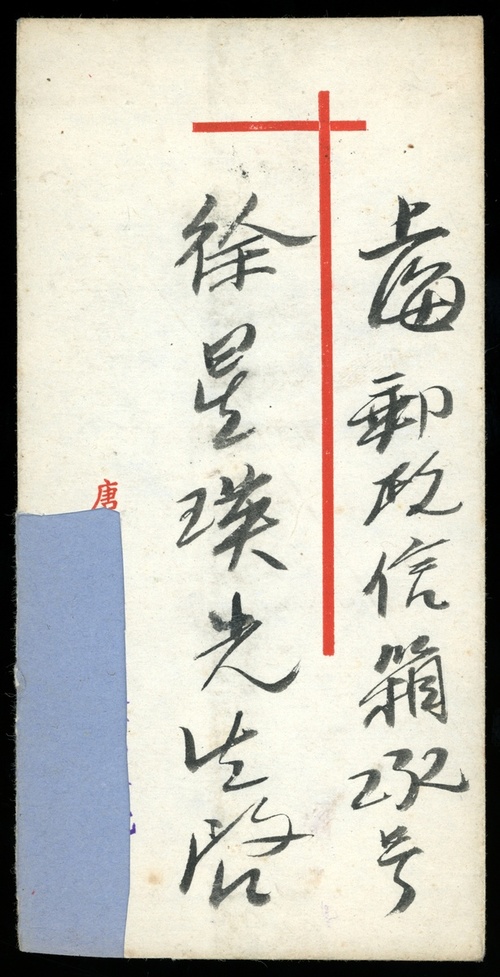 上海郵政信箱号
徐星瑛先生啓
唐